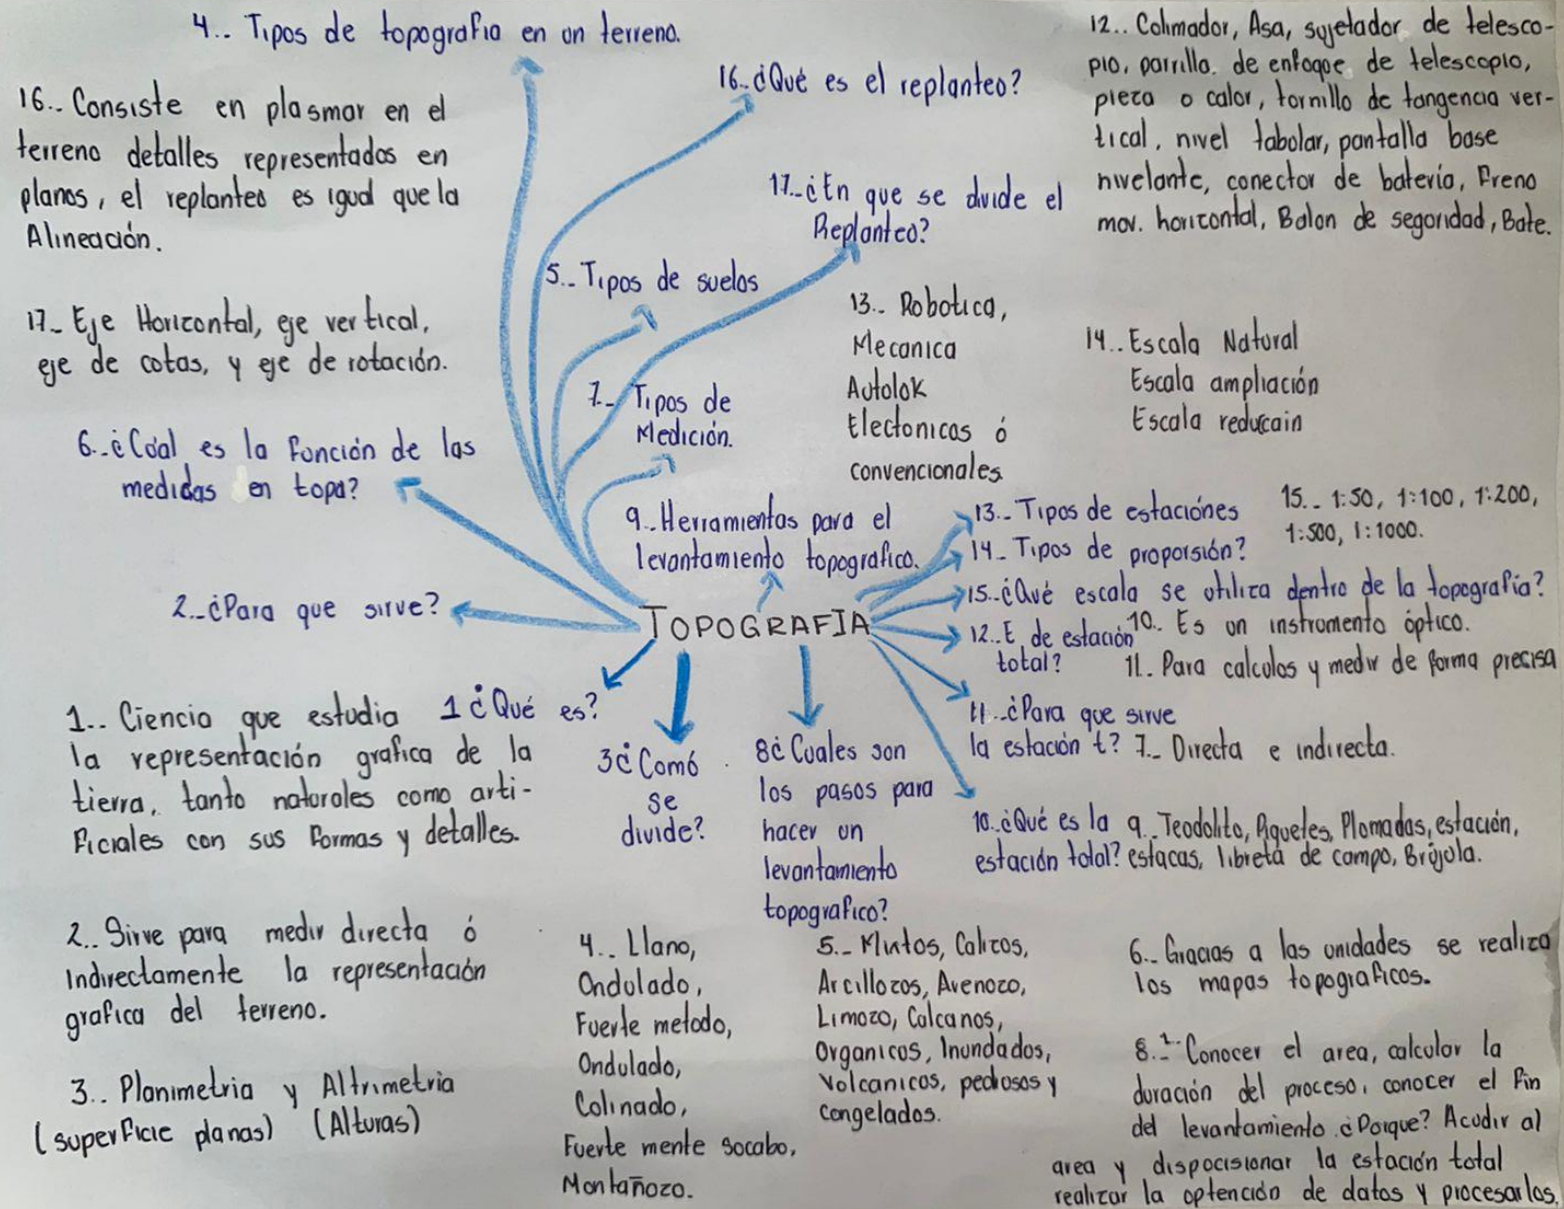 4.. Tipos de topografia en un terreno.
16.. ¿Qué es el replanteo?
12.. Colimador, Asa, sujetador de telesco-
pio, parrilla. de enfoque de telescopio,
pieza o calor, tornillo de tangencia ver-
tical, nivel tabolar, pantalla base
nivelante, conector de batería, Freno
mov. horizontal, Balon de seguridad, Bate.
16.. Consiste en plasmar en el
terreno detalles representados en
planos, el replanteo es igual que la
Alineación.
17.-¿En que se divide el
Replanteo?
5.. Tipos de suelos
17.. Eje Horizontal, eje vertical,
eje de cotas, y eje de rotación.
13.. Robotica,
Mecanica
Autolok
Electonicas ó
convencionales.
14.. Escala Natural
Escala ampliación
Escala reduccain
7.- Tipos de
Medición.
6.-¿Cúal es la función de las
medidas en topo?
9.. Herramientas para el
levantamiento topografico.
13.- Tipos de estaciónes
14.- Tipos de proporsión?
15..¿Qué escala se utiliza dentro de la topografía?
15.. 1:50, 1:100, 1:200,
1:500, 1:1000.
2.-¿Para que sirve?
TOPOGRAFIA
12.. E de estación
total?
10.. Es un instrumento óptico.
11.. Para calculos y medir de forma precisa
1 ¿Qué es?
1.. Ciencia que estudia
la representación grafica de la
tierra, tanto naturales como arti-
ficiales con sus formas y detalles.
3¿ Comó
se
divide?
8¿ Cuales son
los pasos para
hacer un
levantamiento
topografico?
11..¿Para que sirve
la estación t?
7.. Directa e indirecta.
10.¿Qué es la
estación total?
9.. Teodolito, Piquetes, Plomadas, estación,
estacas, libreta de campo, Brújola.
2.. Sirve para medir directa ó
Indirectamente la representación
grafica del terreno.
3.. Planimetria y Altrimetria
(superficie planas) (Alturas)
4.. Llano,
Ondulado,
Fuerte metodo,
Ondulado,
Colinado,
Fuerte mente socabo,
Montañozo.
5.- Mixtos, Calizos,
Arcillozos, Arenozo,
Limozo, Calcanos,
Organicos, Inundados,
Volcanicos, pedosos y
congelados.
6.. Gracias a las unidades se realiza
los mapas topograficos.
8.- Conocer el area, calcular la
duración del proceso, conocer el fin
del levantamiento ¿Porque? Acudir al
area y dispocisionar la estación total
realizar la optención de datos y procesarlos.